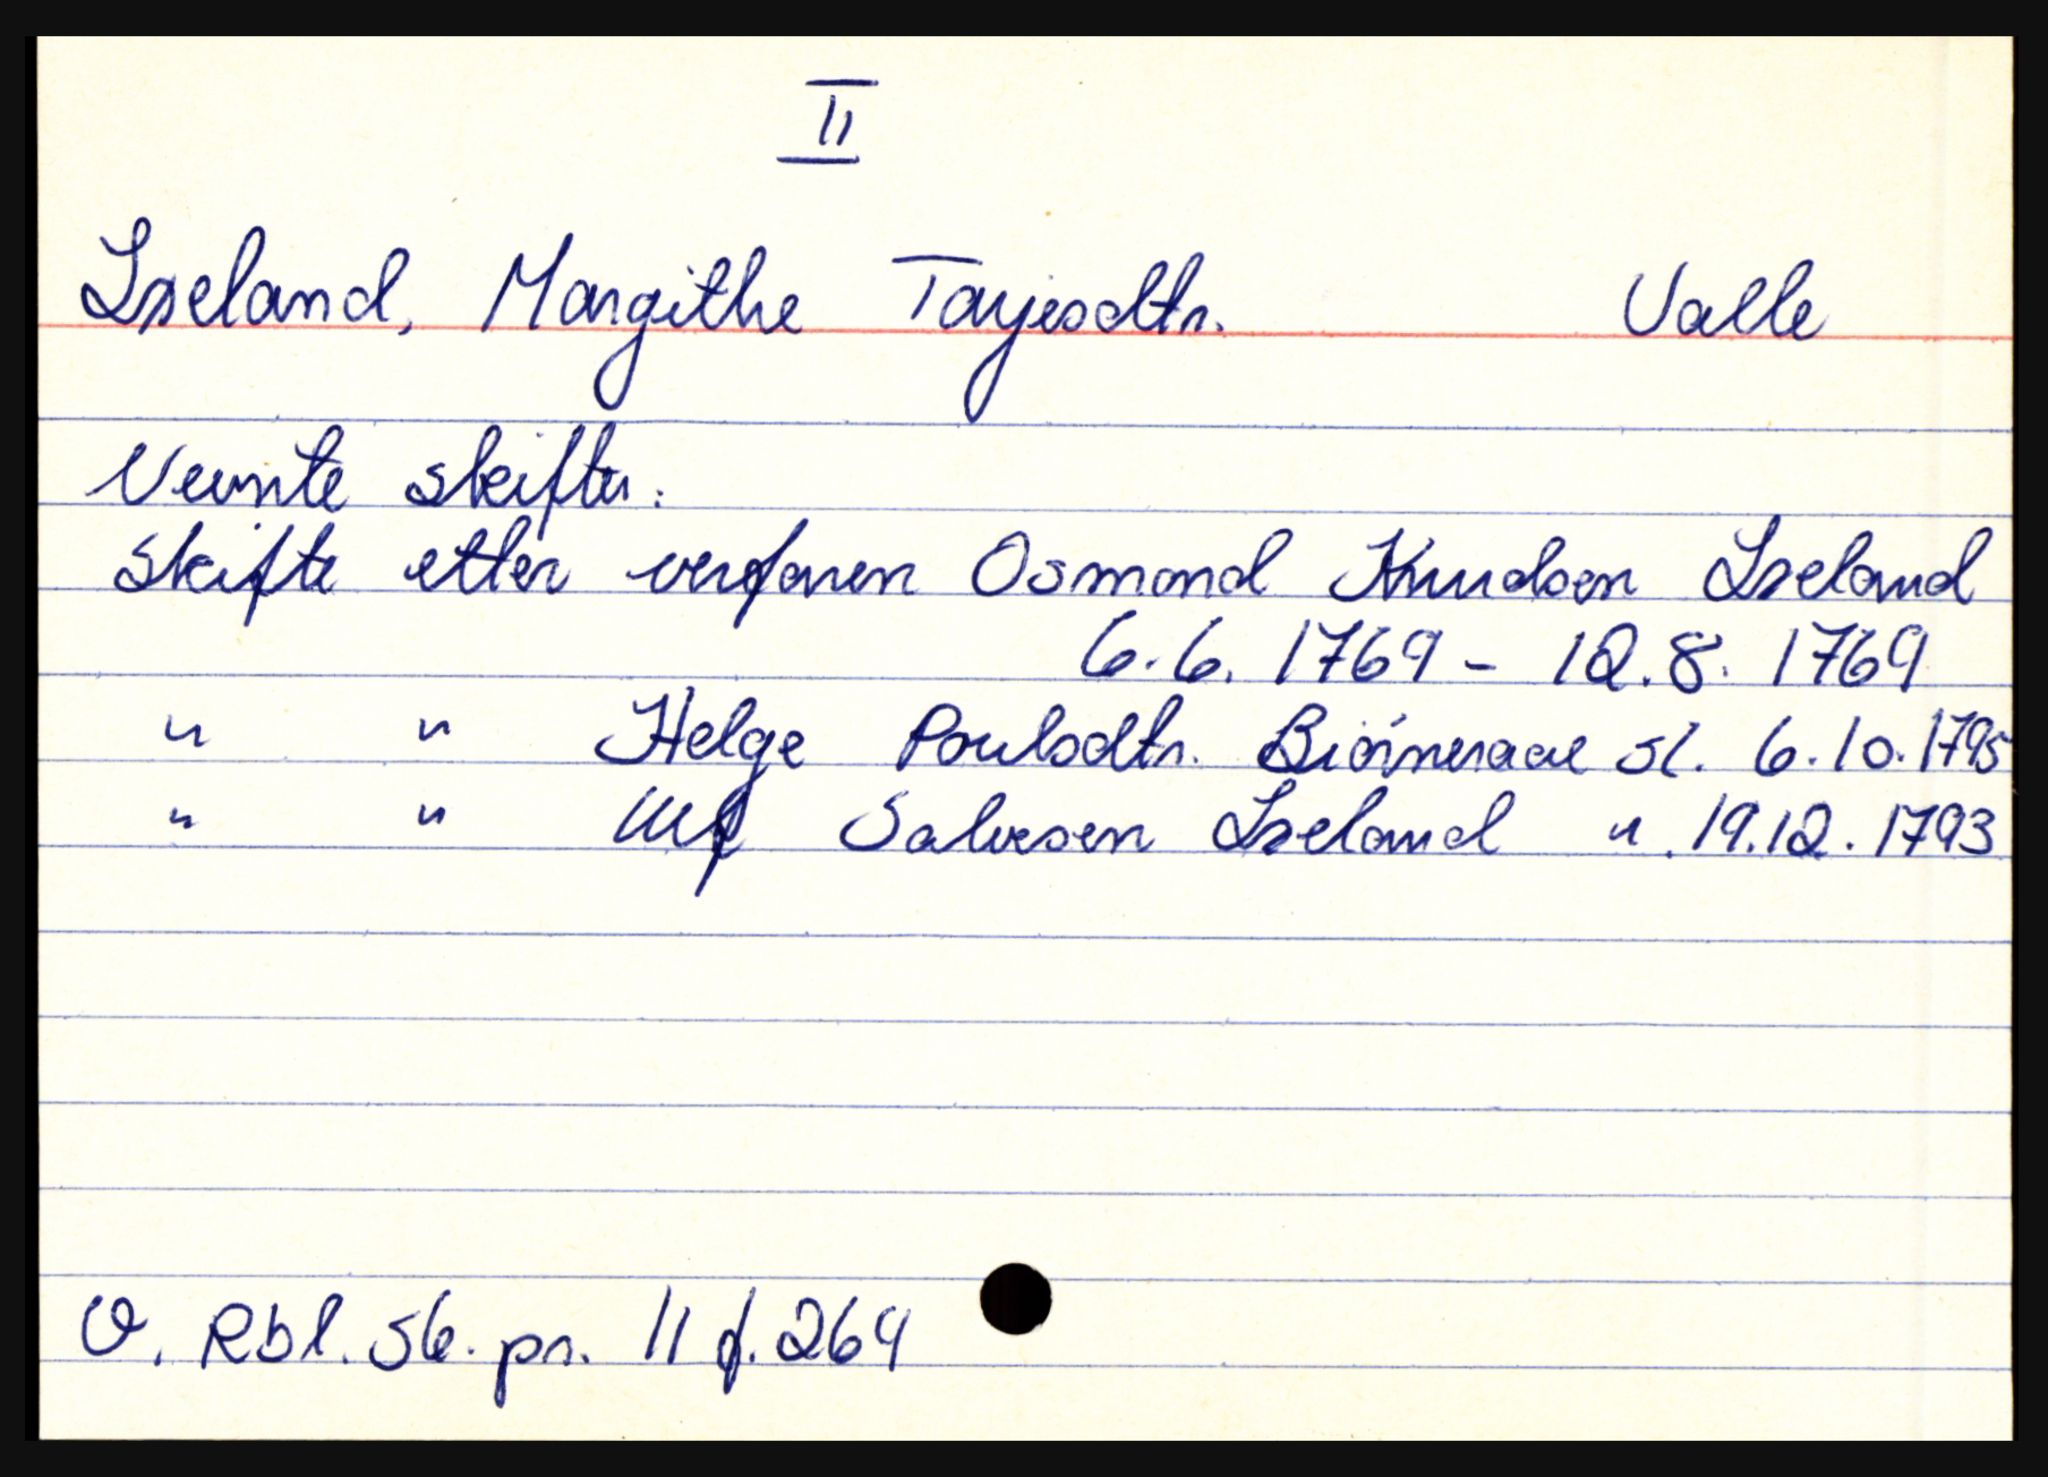 II
Iseland, Margithe Tarjesdtr. Valle
Nevnte skifter:
Skifte etter verfaren Osmond Knudsen Iseland
6.6.1769 - 12.8.1769
" " Helge Poulsdtr. Biörneraae sl. 6.10.1795
" " Ulf Salvesen Iseland " . 19.12.1793
O. Rbl. sk. pr. 11 f. 264